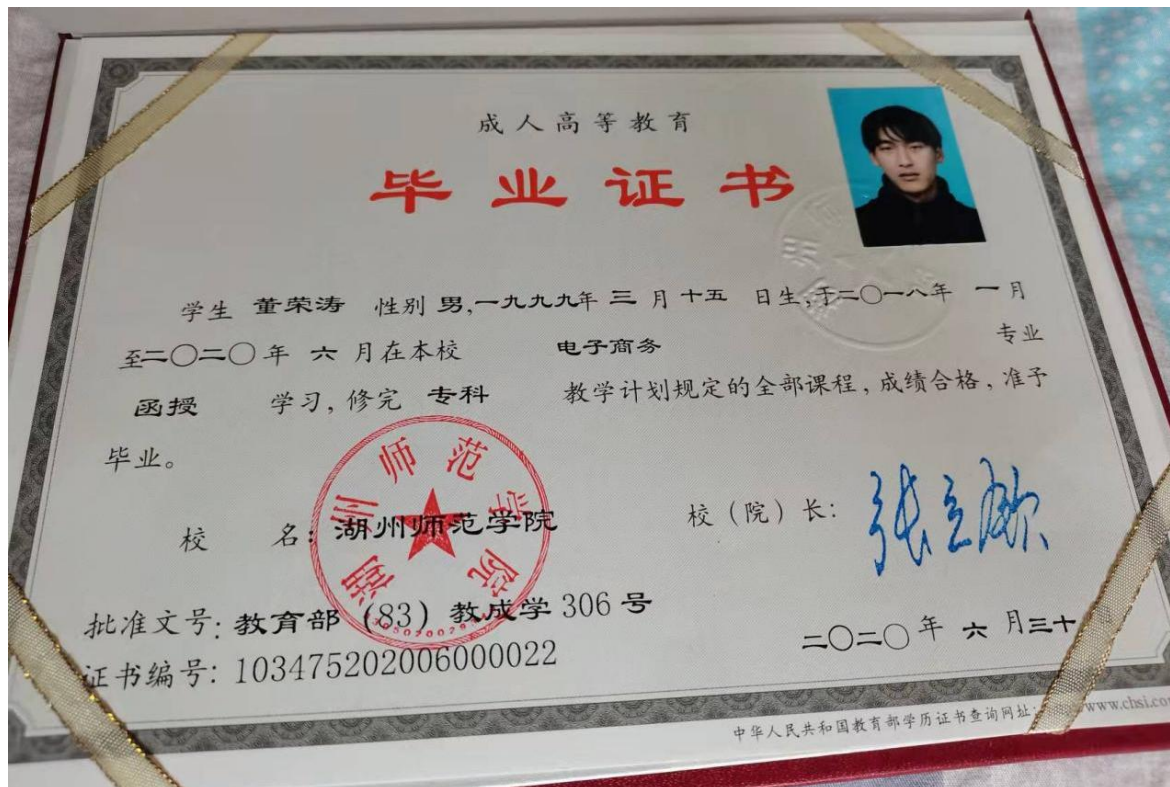 成人高等教育
毕业证书
学生 董荣涛 性别 男,一九九九年 三 月 十五 日生,于二〇一八年 一 月
至二〇二〇年 六 月在本校 电子商务 专业
函授 学习,修完 专科 教学计划规定的全部课程,成绩合格,准予
毕业。
校 名:湖州师范学院
校(院)长:
湖州师范学院
批准文号:教育部(83)教成学306号
二〇二〇年 六 月三十
证书编号:103475202006000022
中华人民共和国教育部学历证书查询网址:
www.chsi.co